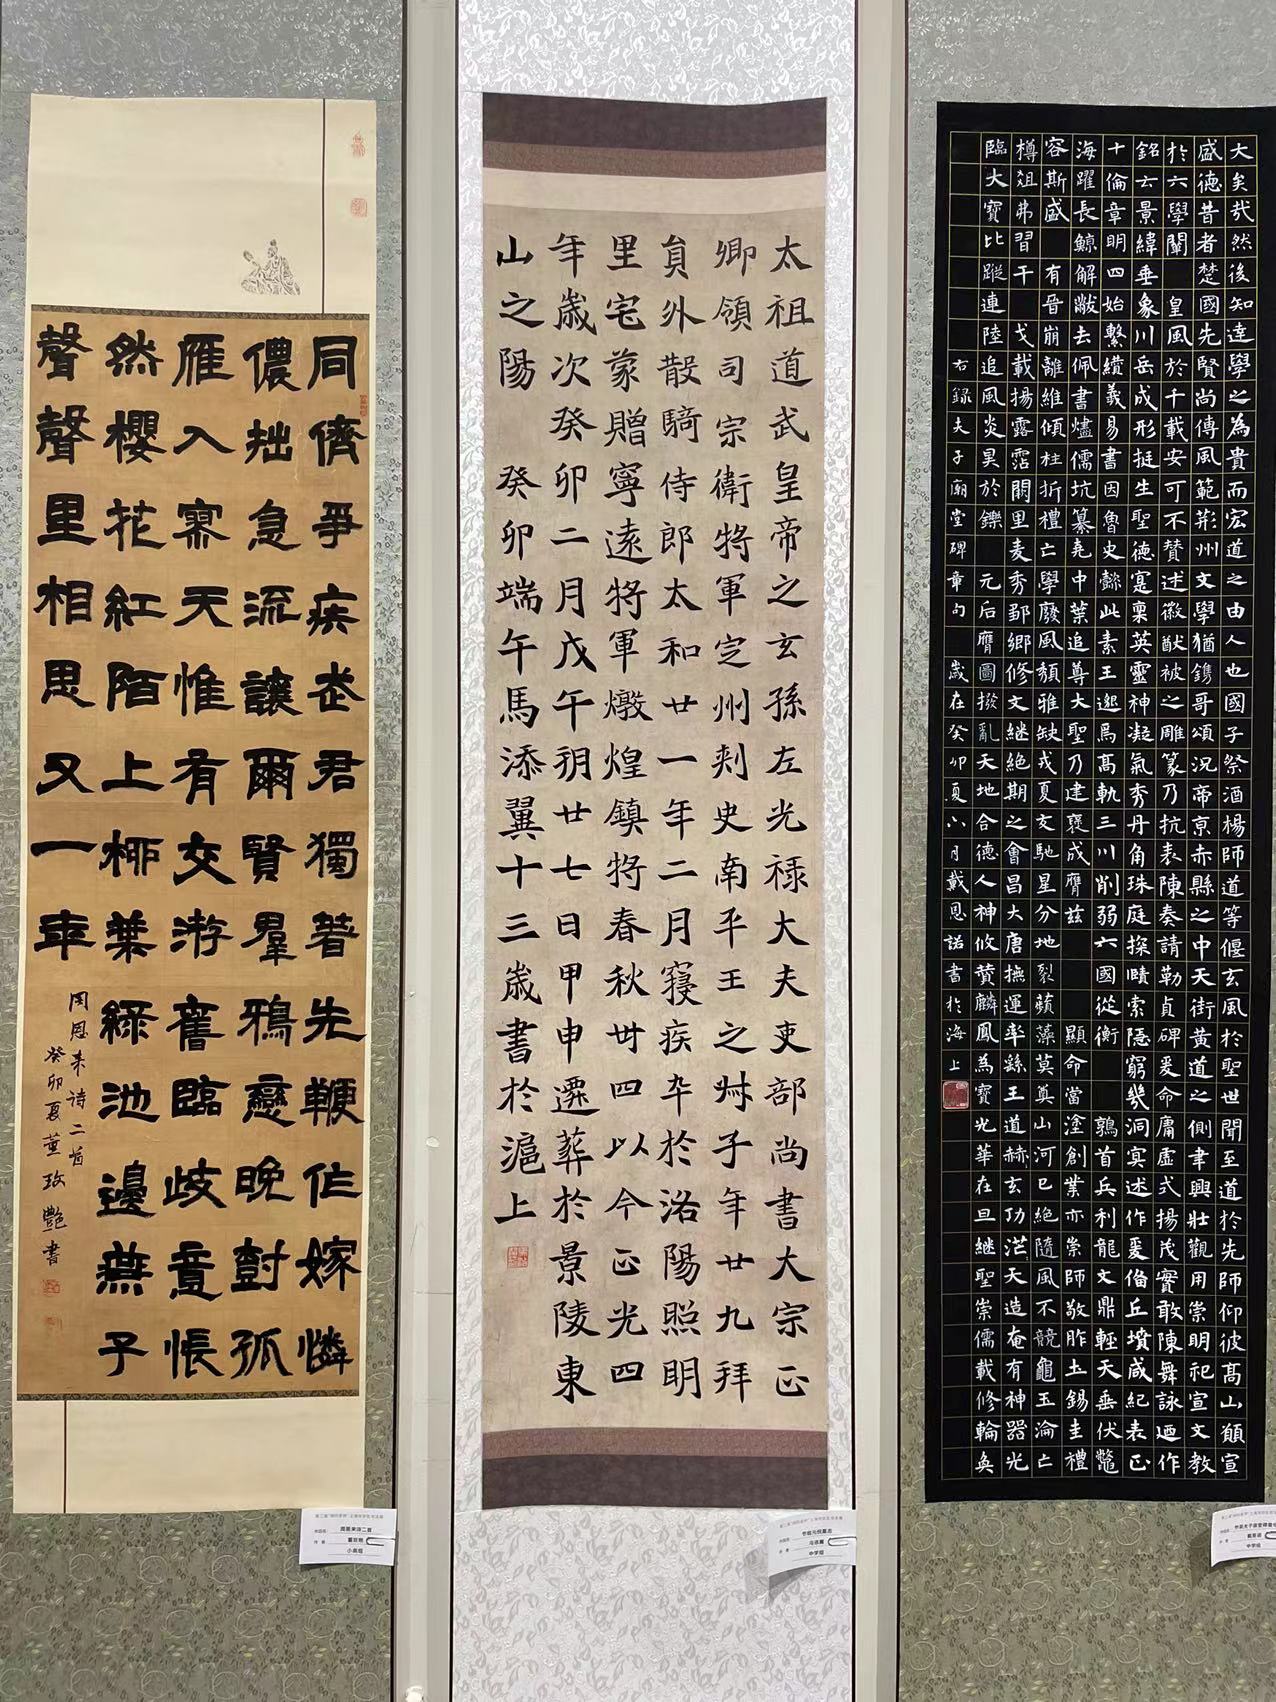 同儕爭疾走君獨著先鞭作嫁憐
儂拙急流讓爾賢羣鴉戀晚尌孤
雁入寥天惟有交游舊臨歧意悵
然櫻花紅陌上柳葉綠池邊燕子
聲聲里相思又一年
周恩来诗二首
癸卯夏董玫艷書
太祖道武皇帝之玄孫左光祿大夫吏部尚書大宗正
卿領司宗衛將軍定州刺史南平王之弟子年廿九拜
員外散騎侍郎太和廿一年二月寢疾卒於洛陽照明
里宅蒙贈寧遠將軍燉煌鎮將春秋卅四以今正光四
年歲次癸卯二月戊午朔廿七日甲申遷葬於景陵東
山之陽 癸卯端午馬添翼十三歲書於滬上
大矣哉然後知達學之為貴而宏道之由人也國子祭酒楊師道等偃玄風於聖世聞至道於先師仰彼高山願宣
盛德昔者楚國先賢尚傳風範荊州文學猶鐫哥頌況帝京赤縣之中天街黃道之側聿興壯觀用崇明祀宣文教
於六學闡 皇風於千載安可不贊述徽猷被之雕篆乃抗表陳奏請勒貞碑爰命庸虛式揚茂實敢陳舞詠迺作
銘云景緯垂象川岳成形挺生聖德寔稟英靈神凝氣秀丹角珠庭探賾索隱窮幾洞冥述作爰俻丘墳咸紀表正
十倫章明四始繫纘羲易書因魯史懿此素王邈焉高軌三川削弱六國從衡 鶉首兵利龍文鼎輕天垂伏鼈
海躍長鯨解黻去佩書燼儒坑纂堯中葉追尊大聖乃建褒成膺茲 顯命當塗創業亦崇師敬胙土錫圭禮
容斯盛 有晉崩離維傾柱折禮亡學廢風頹雅缺戎夏交馳星分地裂蘋藻莫奠山河已絕隨風不競龜玉淪亡
樽俎弗習干 戈載揚露霑闕里麥秀鄒鄉修文継絕期之會昌大唐撫運率繇王道赫玄功茫天造奄有神器光
臨大寶比蹤連陸追風炎昊於鑠 元后膺圖撥亂天地合德人神攸贊麟鳳為寶光華在旦継聖崇儒載修輪奐
右錄夫子廟堂碑章句 歲在癸卯夏六月戴恩諾書於海上
周恩来诗二首
小高组
节临元倪墓志
马添翼
中学组
中学组